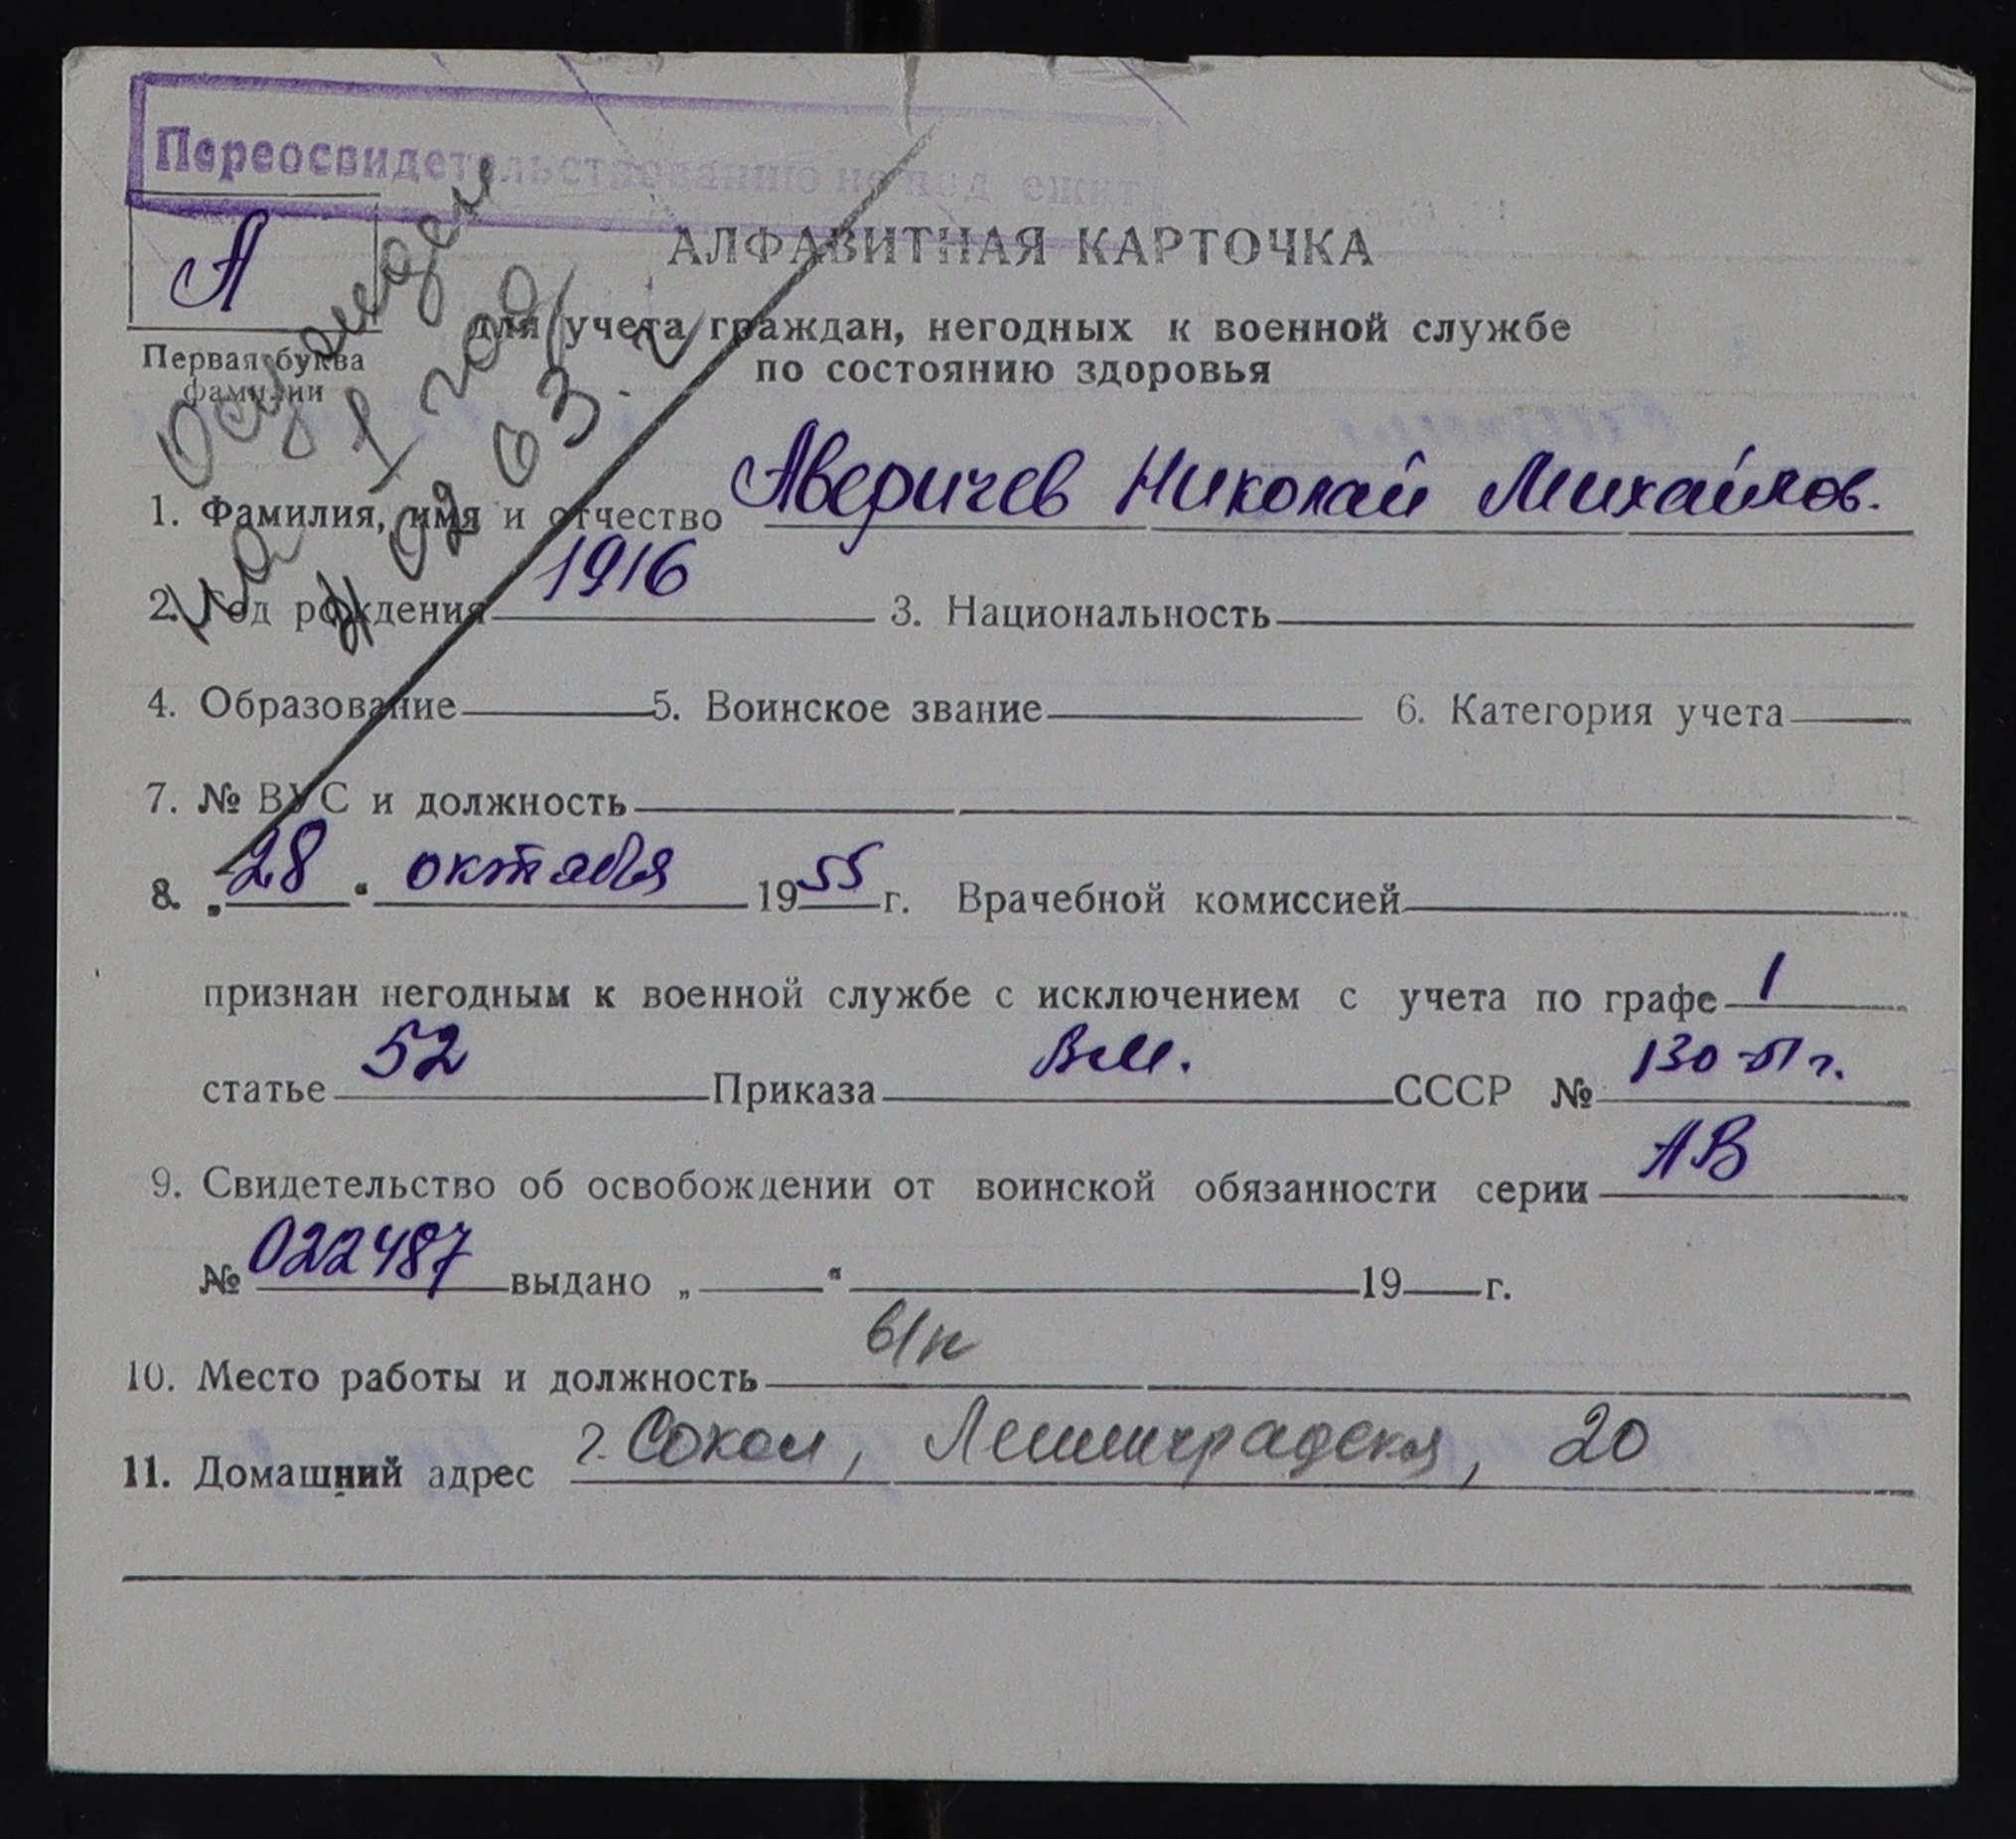 Переосвидетельствованию не подлежит
А
Первая буква
фамилии
Осужден
на 1 год
02 63. г
АЛФАВИТНАЯ КАРТОЧКА
для учета граждан, негодных к военной службе
по состоянию здоровья
1. Фамилия, имя и отчество Аверичев Николай Михайлов.
2. Год рождения 1916 3. Национальность
4. Образование 5. Воинское звание 6. Категория учета
7. № ВУС и должность
8. „28“ октября 1955 г. Врачебной комиссией
признан негодным к военной службе с исключением с учета по графе 1
статье 52 Приказа ВМ. СССР № 130-51 г.
9. Свидетельство об освобождении от воинской обязанности серии АВ
№ 022487 выдано „ “ 19 г.
10. Место работы и должность
11. Домашний адрес г. Сокол, Ленинградская, 20